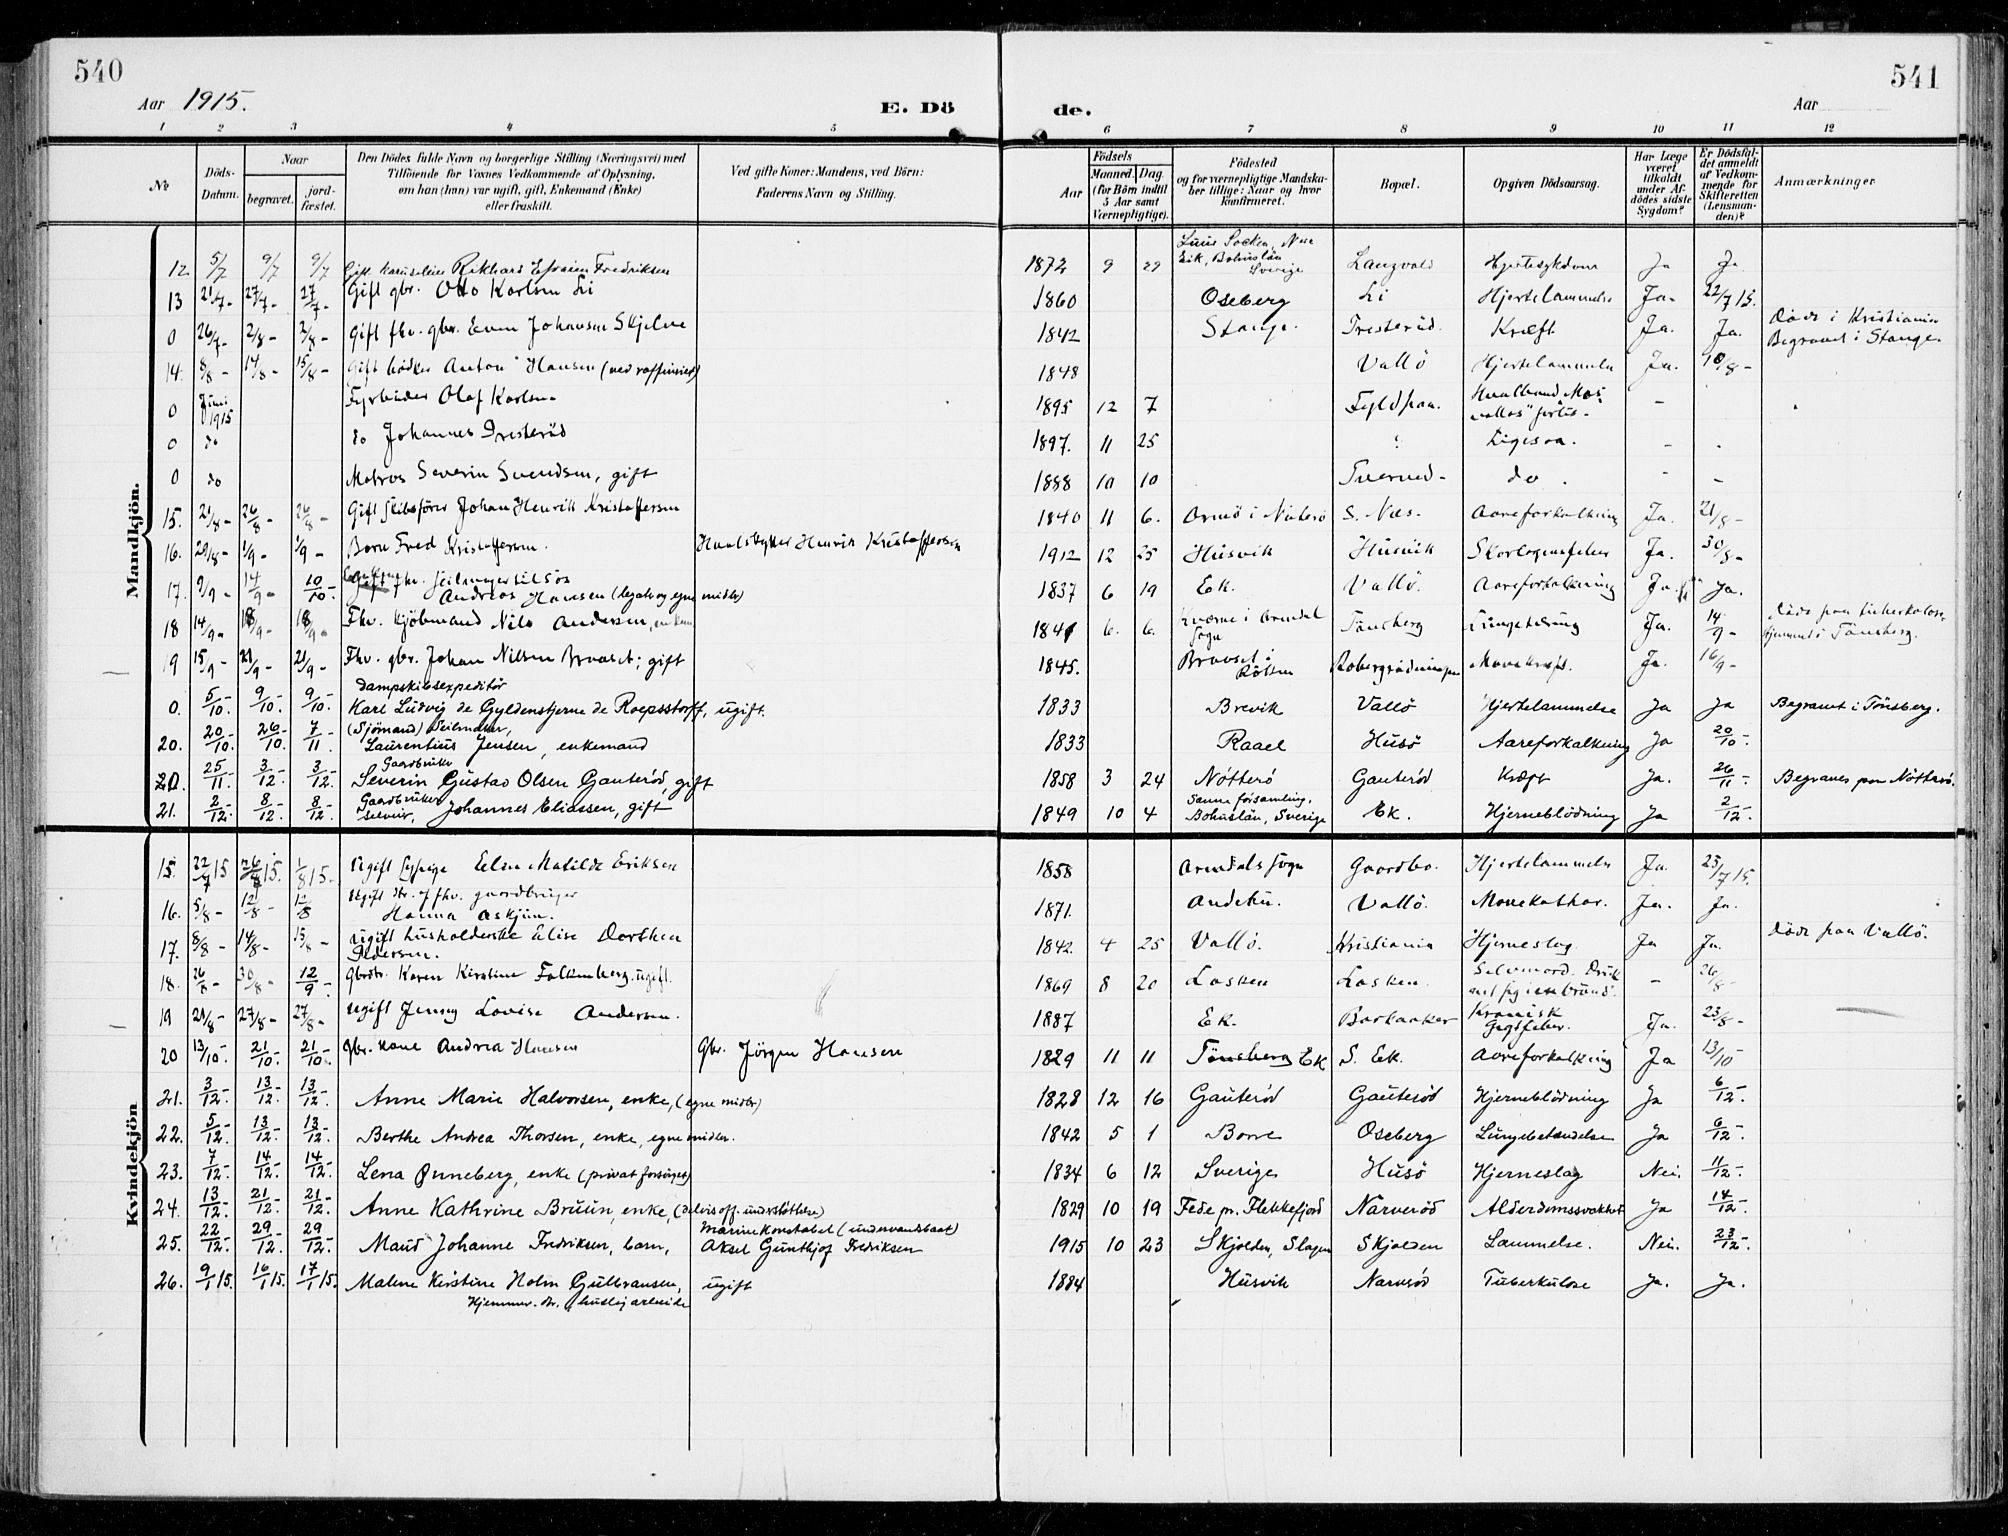 540
541
Aar 1915.
E. Dö
de.
Aar
1 2 3 4 5 6 7 8 9 10 11 12
No
Döds-Datum.
Naar
begravet.
jord-fæstet.
Den Dödes fulde Navn og borgerlige Stilling (Næringsvei) med
Tilföiende for Voxnes Vedkommende af Oplysning,
om han (hun) var ugift, gift, Enkemand (Enke)
eller fraskilt.
Ved gifte Koner: Mandens, ved Börn:
Faderens Navn og Stilling.
Födsels
Aar
Maaned. Dag.
(for Börn indtil
5 Aar samt
Værnepligtige).
Födested
og for værnepligtige Mandska-
ber tillige: Naar og hvor
konfirmeret.
Bopæl.
Opgiven Dödsaarsag.
Har Læge
været
tilkaldt
under Af-
dödes sidste
Sygdom?
Er Dödsfal-
det anmeldt
af Vedkom-
mende for
Skifteretten
(Lensman-
den)?
Anmærkninger
Mandkjön.
12 5/7 9/7 9/7 Gift Rikhard Efraim Fredriksen 1872 9 29 Eik, Bohuslän Sverige Langvold Hjertesykdom Ja Ja
13 21/7- 27/7- 27/7- Gift gbr. Otto Karlsen Li 1860 Oseberg Li Hjertelammelse Ja- 22/7 15.
0 26/7- 2/8- 2/8- Gift fhv. gbr. Even Johansen Skjelve 1842 Stange. Presteröd. Kræft Ja. Ja. Döde i Kristiania Begravet i Stange.
14. 8/8- 14/8- 15/8- Gift bödker Anton Hansen (ved raffineriet) 1848 Vallö Hjertelammelse Ja. 10/8-
0 Juni 1915 Fyrböder Olaf Karlsen 1895 12 7 Fyldpaa. Hvalbaad forlis- -
0 do do Johannes Presteröd 1897. 11 25 Ligesaa. - -
0 do Matros Severin Svendsen, gift 1888 10 10 Tverved- do. - -
15. 21/8- 26/8- 26/8- Gift Skibsförer Johan Henrik Kristoffersen 1840 11 6. Arnö i Nöterö S. Næs- Aareforkalkning Ja. 21/8-
16. 29/8- 1/9- 1/9- Barn Fred Kristoffersen. Hvalskytter Henrik Kristoffersen 1912 12 25 Husvik Husvik Skarlagensfeber Ja. 30/8-
17. 9/9- 14/9- 10/10- fhv. seilmager tilsös Andreas Hansen (legats og egne midler) 1837 6 19 Ek. Vallö. Aareforkalkning Ja. Ja.
18 14/9- 18/9- 18/9- Fhv. Kjöbmand Nils Andersen, enkem 1841 6. 6. i Arendal Sogn Tönsberg Lungetæring Ja. 14/9- Döde paa tuberkulose-hjemmet i Tönsberg.
19 15/9- 21/9- 21/9- Fhv. gbr. Johan Nilsen Braaset; gift 1845. Braaset i Mavekræft. Ja. 16/9-
0. 5/10- 9/10- 9/10- Dampskibsexpeditör Karl Ludvig de Gyldenstjerne de Roepsstorff, ugift. 1833 Brevik Vallö Hjertelammelse Ja Ja Begravet i Tönsberg.
20. 20/10- 26/10- 7/11- (Sjömand) Seilmaker, Laurentius Jensen, enkemand 1833 Raael Husö Aareforkalkning Ja 20/10-
20. 25/11- 3/12- 3/12- Gaardbruker Severin Gustav Olsen Gauteröd, gift 1858 3 24 Nötterö Gauteröd Kræft Ja. 26/11- Begraves paa Nötterö.
21. 2/12- 8/12- 8/12- Gaardbruker selveier, Johannes Eliassen, gift 1849 10 4 Sanne församling, Bohuslän, Sverige Ek. Hjerneblödning Ja 2/12-
Kvindekjön
15. 22/7 15 26/7 15. 1/8 15. Ugift Sypige Elen Matilde Eriksen 1858 Arendals Sogn Gaardbo. Hjertelammelse Ja. 23/7 15.
16. 5/8- 12/8- 12/8 Ugift dtr. af fhv. gaardbruger Hanna Askjem. 1871. Andebu. Vallö. Mavekathar. Ja. Ja.
17. 8/8- 14/8- 15/8- Ugift husholderske Elise Dorthea Pedersen. 1842. 4 25 Vallö. Kristiania Hjerneslag. Ja Ja. Döde paa Vallö.
18. 26/8- 30/8- 12/9- Gbrdtr. Karen Kirstine Falkenberg. ugift. 1869 8 20 Lasken Lasken. Selvmord. Druknet sig i en brönd. - 26/8-
19 21/8- 27/8- 27/8- Ugift Jenny Lovise Andersen. 1887 Ek. Barkaaker Kronisk Gigtfeber. Ja. 23/8-
20 13/10- 21/10- 21/10- Gbr. kone Andrea Hansen Gbr. Jörgen Hansen 1829 11 11 Tönsberg Ek S. Ek. Aareforkalkning Ja 13/10
21. 3/12- 13/12- 13/12- Anne Marie Halvorsen, enke, (egne midler) 1828 12 16 Gauteröd Gauteröd Hjerneblödning Ja 6/12-
22. 5/12- 13/12- 13/12- Berthe Andrea Thorsen, enke, egne midler. 1842 5 1 Borre Oseberg Lungebetændelse Ja 6/12-
23. 7/12- 14/12- 14/12- Lena Önneberg, enke (privat forsörget) 1834 6 12 Sverige Husö Hjerneslag Nei. 11/12-
24. 13/12- 21/12- 21/12- Anne Kathrine Bruun, enke, (delvis off. understöttelse) 1829 10 19 Fede pr. Flekkefjord Narveröd Alderdomssvakhet Ja 14/12-
25. 22/12- 29/12- 29/12- Maud Johanne Fredriksen, barn, Marinekonstabel (undervandsbaat) Aksel Gunthjof Fredriksen 1915 10 23 Skjolden, Slagen Skjolden Lammelse. Nei. 23/12-
26. 9/1 15. 16/1 15. 17/1 15. Malene Kirstine Holm Gulbransen, ugift 1884 Husvik Narveröd Tuberkulose Ja. Ja.
Hjemmev. dtr. huslig arbeide